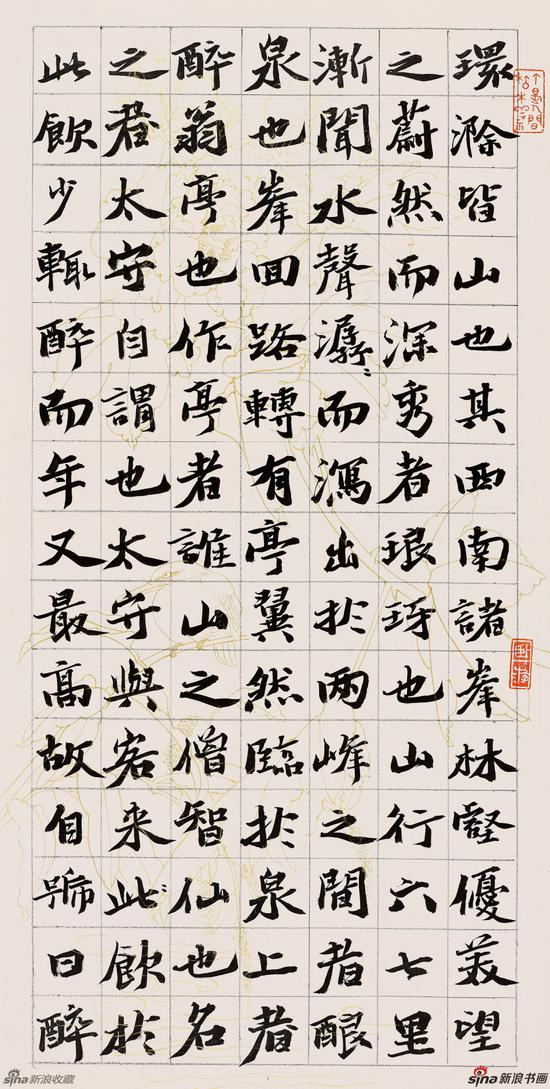 環滁皆山也其西南諸峯林壑優美望
之蔚然而深秀者琅玡也山行六七里
漸聞水聲潺〻而瀉出於兩峰之間者酿
泉也峯回路轉有亭翼然臨於泉上者
醉翁亭也作亭者誰山之僧智仙也名
之者太守自謂也太守與客来此飲於
此飲少輙醉而年又最高故自號曰醉
sina新浪收藏
sina新浪书画